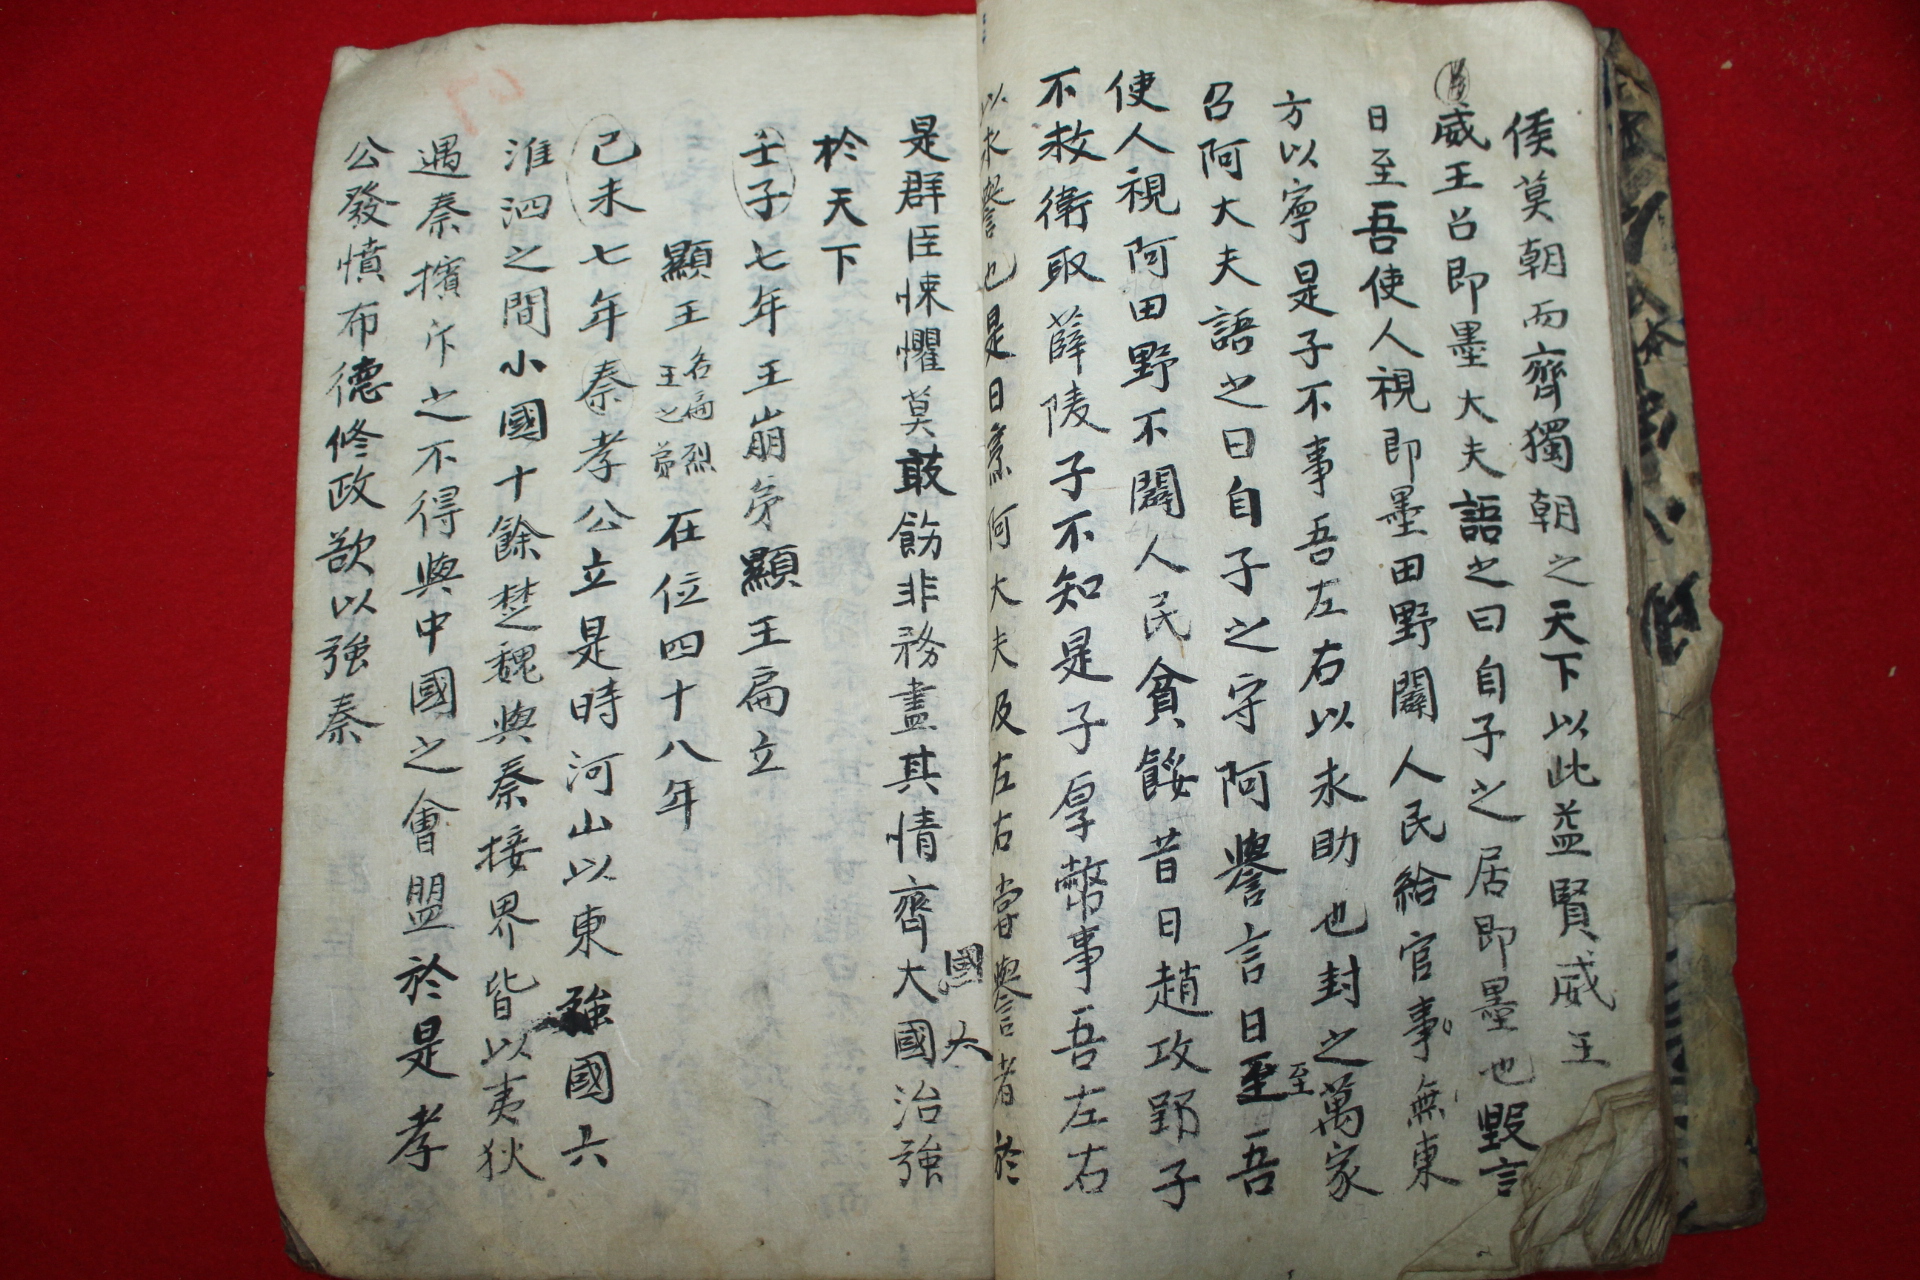 侯莫朝而齊獨朝之天下以此益賢威王
威王召即墨大夫語之曰自子之居即墨也毀言
日至吾使人視即墨田野闢人民給官事無東
方以寧是子不事吾左右以求助也封之萬家
召阿大夫語之曰自子之守阿譽言日至吾
至
使人視阿田野不闢人民貧餒昔日趙攻鄄子
不救衛取薛陵子不知是子厚幣事吾左右
以求譽也是日烹阿大夫及左右嘗譽者於
是群臣悚懼莫敢飾非務盡其情齊大國治強
國 大
於天下
壬子七年王崩弟顯王扁立
顯王名扁烈王之弟在位四十八年
己未七年秦孝公立是時河山以東強國六
淮泗之間小國十餘楚魏與秦接界皆以夷狄
遇秦擯斥之不得與中國之會盟於是孝
公發憤布德修政欲以強秦